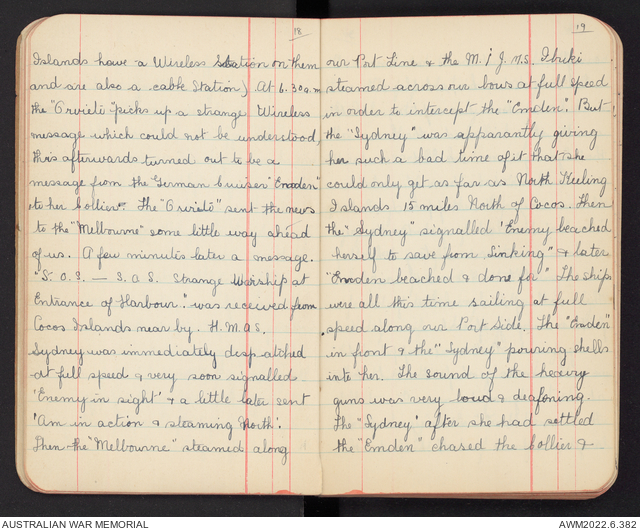 18
Islands have a Wireless Station on them
and are also a cable Station) At 6.30 a.m
the "Orvieto" picks up a strange Wireless
message which could not be understood,
this afterwards turned out to be a
message from the German Cruiser "Emden"
to her Collier. The "Orvieto" sent the news
to the "Melbourne" some little way ahead
of us. A few minutes later a message.
"S.O.S. — S.O.S. Strange Warship at
Entrance of Harbour." was received from
Cocos Islands near by. H.M.A.S.
Sydney was immediately despatched
at full speed & very soon signalled
'Enemy in sight' & a little later sent
'Am in action & steaming North'.
Then the "Melbourne" steamed along
19
our Port Line & the M.I.J.M.S. Ibuki
steamed across our bows at full speed
in order to intercept the "Emden". But
the "Sydney" was apparantly giving
her such a bad time of it that she
could only get as far as North Keeling
Islands 15 miles North of Cocos. Then
the "Sydney" signalled 'Enemy beached
herself to save from Sinking" & later
"Emden beached & done for" The ships
were all this time sailing at full
speed along our Port Side. The "Emden"
in front & the "Sydney" pouring shells
into her. The sound of the heavy
guns was very loud & deafening.
The "Sydney" after she had settled
the "Emden" chased the Collier &
AUSTRALIAN WAR MEMORIAL
AWM2022.6.382